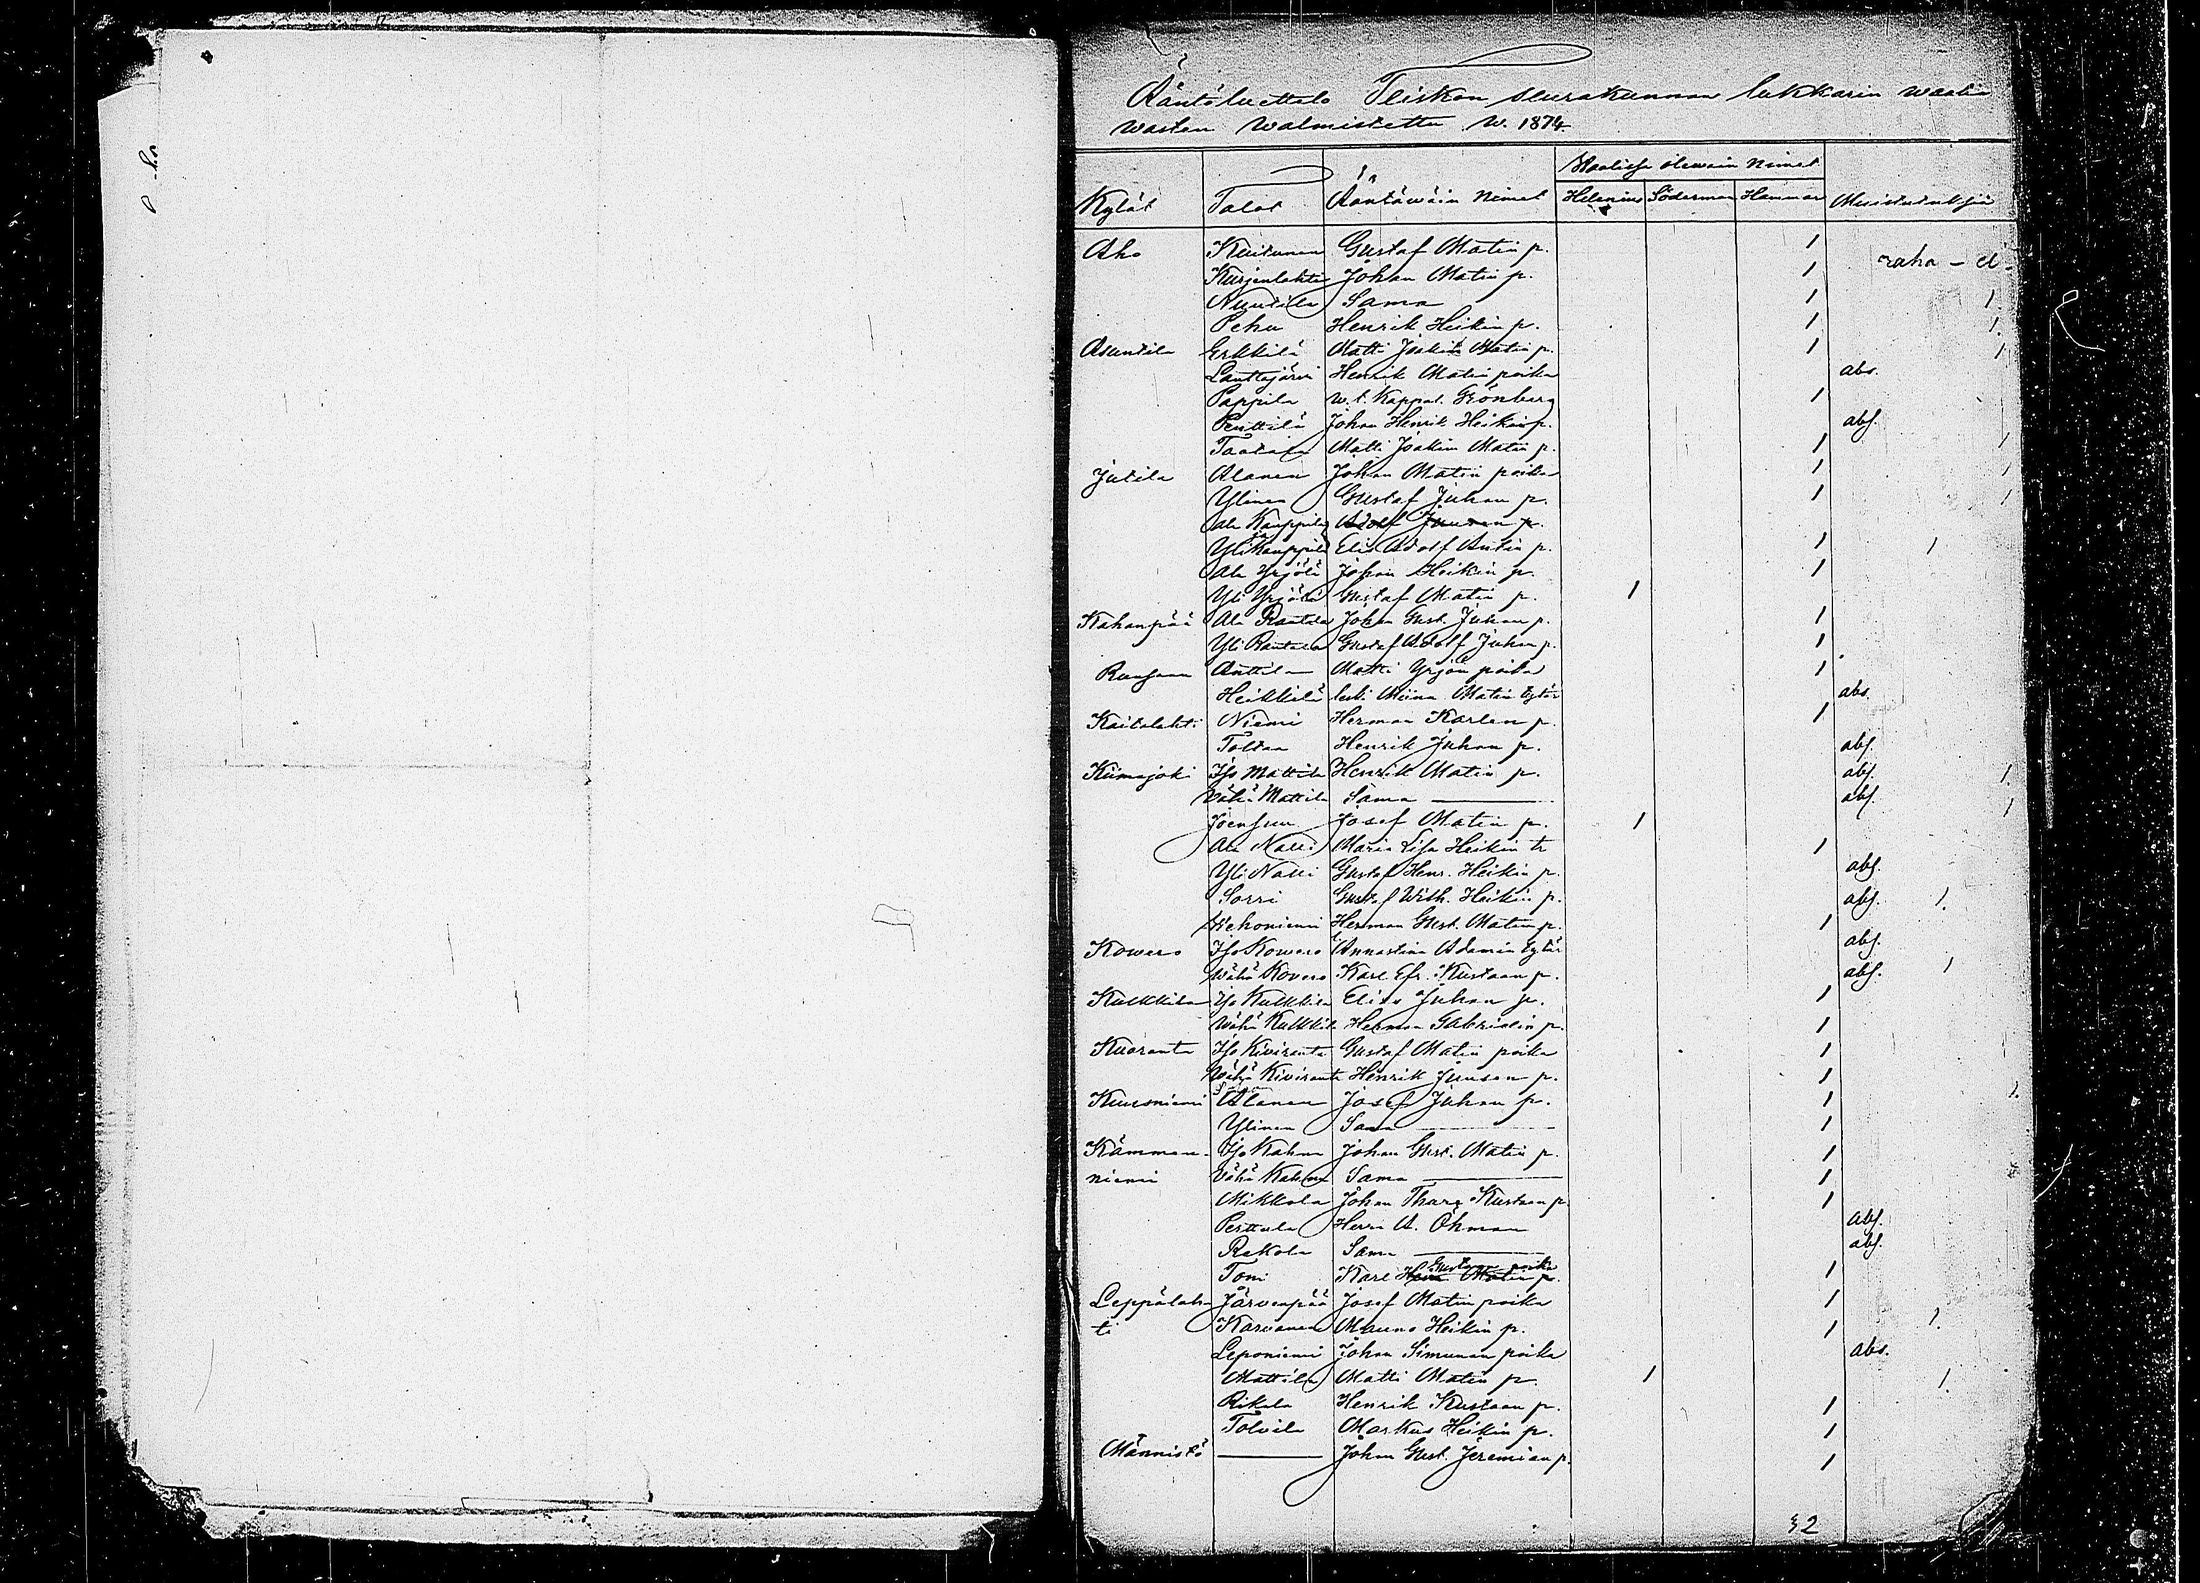 Ääntöluettelo Teiskon seurakunnan lukkarin waalia
warten walmistettu w. 1874
Kylät Talot Ääntäwäin nimet Waalissa olewain nimet Muistutuksia
Helenius Söderman Hammar
Aho Kuitunen Gustaf Matin p. 1 raha - el-
Kurjenlahti Johan Matin p. 1
Nyyrilä Sama 1 1.
Pehu Henrik Heikin p. 1 1.
Asuntila Erkkilä Matti Joakim Matin p. 1 1
Lanttajärvi Henrik Matin poika abs.
Pappila w.t. kappal. Grönberg 1
Penttilä Johan Henrik Heikin p. abs.
Taatala Matti Joakim Matin p. 1 1
Jutila Alanen Johan Matin poika 1 1
Ylinen Gustaf Juhan p. 1 1
Ala Kauppila Adolf Juusen p.
Yli Kauppila Elis Adolf Antin p. 1 1
Ala Yrjölä Johan Heikin p. 1
Yli Yrjölä Gustaf Matin p. 1
Kahanpää Ala Rantala Johan Gust. Juhan p. 1
Yli Rantala Gustaf Adolf Juhan p. 1
Anttila Matti Yrjön poika 1
Heikkilä leski Miina Matin tytär abs.
Kaitalahti Niemi Herman Karlen p. 1
Toltaa Henrik Juhan p. abs.
Kiimajoki Iso Mattila Henrik Matin p. abs. 1.
Vähä Mattila Sama abs. 1
Joensuu Josef Matin p. 1
Ala Nalli Maria Lisa Heikin tr 1
Yli Nalli Gustaf Henr. Heikin p. abs.
Sorri Gustaf Wilh. Heikin p. abs. 1.
Kehoniemi Herman Gust. Matin p. 1
Kowero Iso Kowero Annastina Adamin tytär abs.
Wähä Kovero Karl Efr. Kustaan p. abs. 1
Kulkkila Iso Kulkkila Elias Juhan p. 1
Wähä Kulkkila Herman Gabrielin p. 1
Kuoranta Iso Kiviranta Gustaf Matin poika 1
Wähä Kiviranta Henrik Juusen p. 1
Kuusniemi Alanen Josef Juhan p. 1 1.
Ylinen Sama 1
Kämmen- Iso Kahna Johan Gust. Matin p. 1
niemi Vähä Kahna Sama 1
Mikkola Johan Kustaan p. 1
Perttula Herra A. Öhman abs.
Rekola Sama abs.
Toni Karl Henr. Matin p. Gustaan poika 1
Leppälah- Järvenpää Josef Matin poika 1
ti Karvanen Mauno Heikin p. 1 1.
Leponiemi Johan Simunan poika abs.
Mattila Matti Matin p. 1 1.
Rikala Henrik Kustaan p. 1
Tolvila Markus Heikin p. 1
Männistö Johan Gust. Jeremian p. 1
32